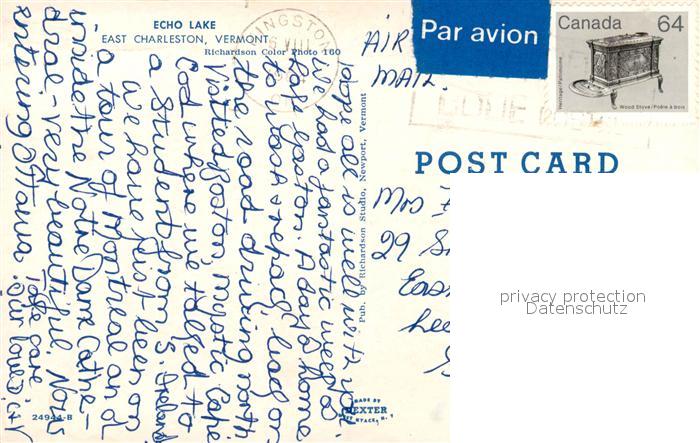 ECHO LAKE
EAST CHARLESTON, VERMONT
Richardson Color Photo 160
AIR
MAIL.
Par avion
Canada 64
Heritage/Patrimoine
Wood Stove/Poêle à bois
POST CARD
Mrs
29
Eas
Lee
Pub. by Richardson Studio, Newport, Vermont
Hope all is well with you
We had a fantastic week at
Cape Easton. A day @ home
to wash & repack, back on
the road driving north
Visited Boston, Mystic, Cape
Cod where we talked to
a student from S. Ireland
We have just been on
a tour of Montreal and
inside the Notre Dame Cathe-
dral - very beautiful. Now
entering Ottawa.
Take care
Our love
24944-B
MADE BY
DEXTER
WEST NYACK, N. Y.
privacy protection
Datenschutz